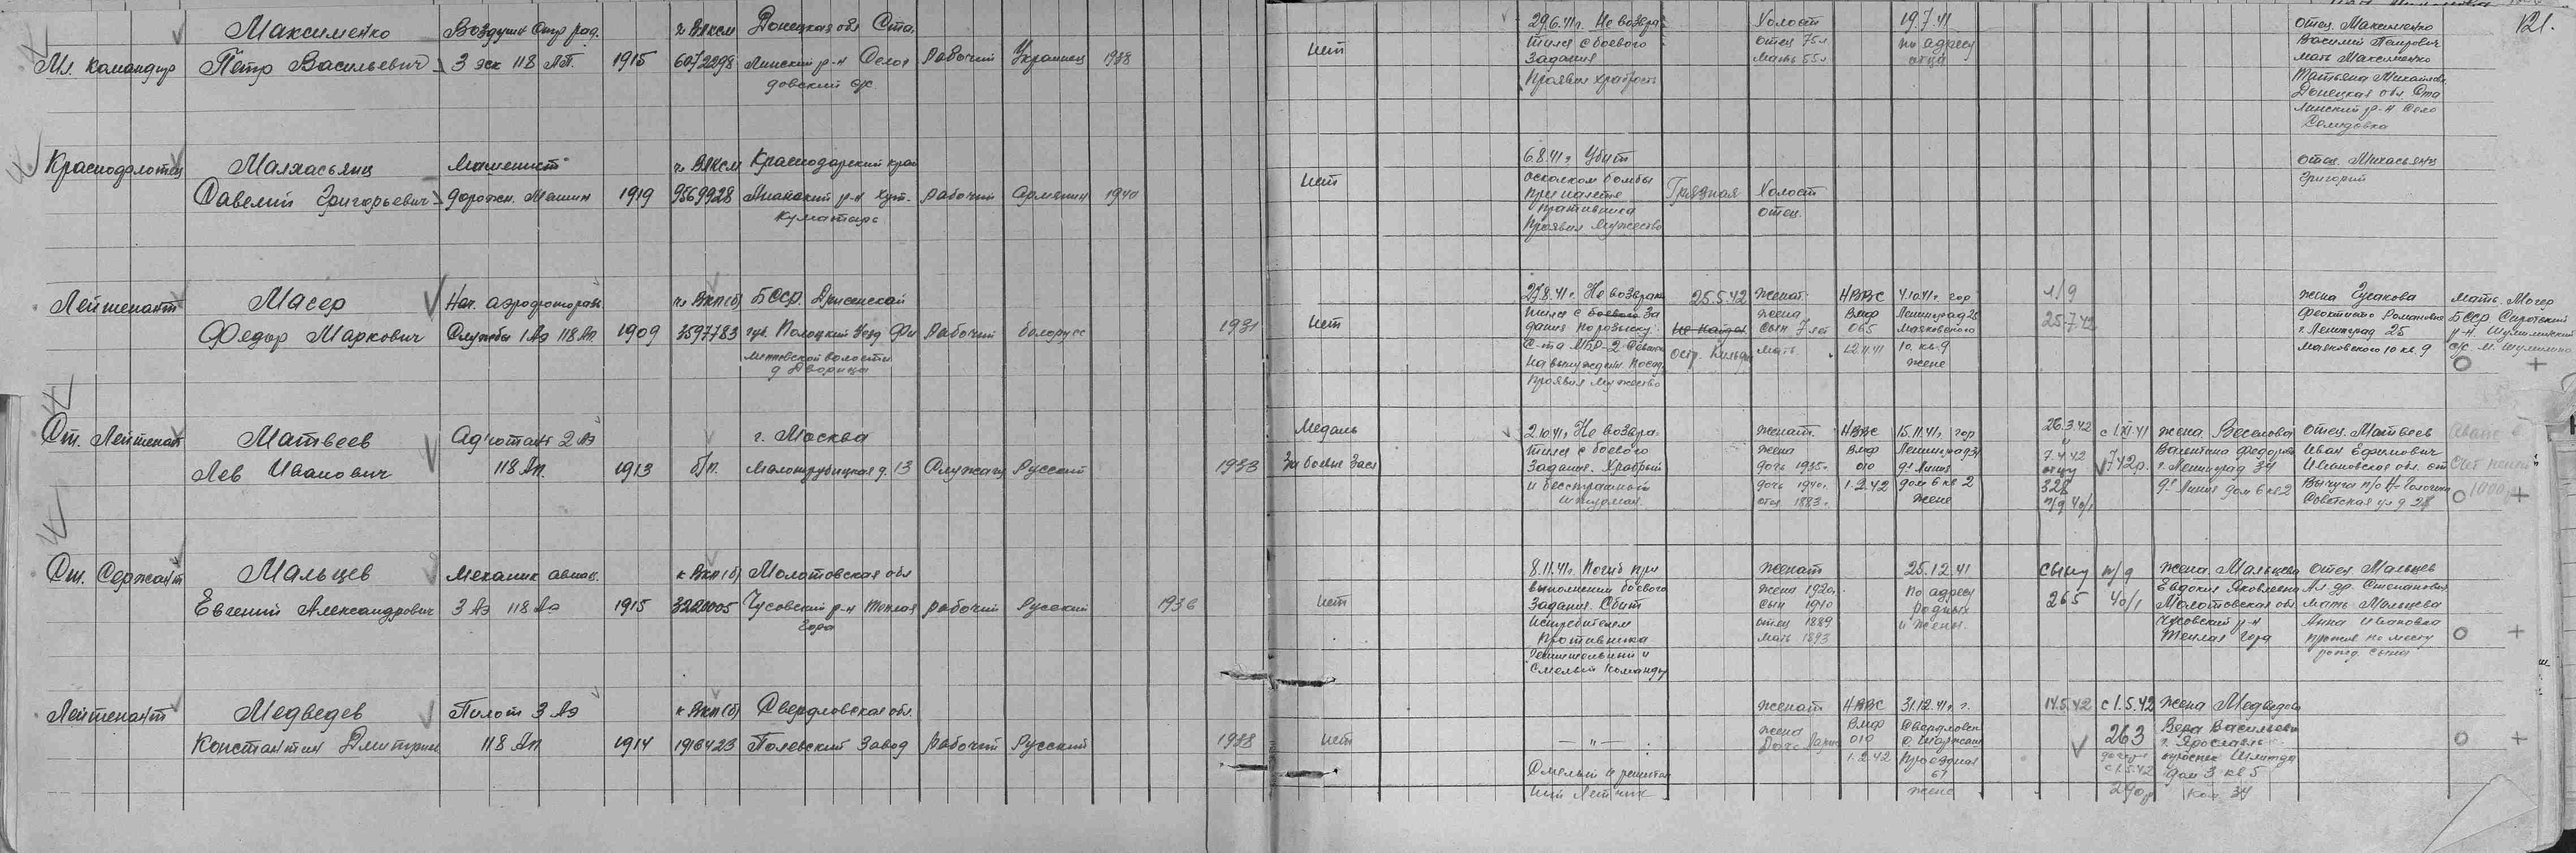 121.
Мл. командир
Максименко
Петр Васильевич
Воздушн Стр рад.
3 эск 118 АП.
1915
чл ВЛКСМ
6072298
Донецкая обл Ста
линский р-н Селог
довский с/с.
Рабочий
Украинец
1938
нет
29.6.41г. Не возвра
тился с боевого
задания
Проявил храбрость
Холост
отец 75л
мать 55л
19.7.41
по адресу
отца
отец. Максименко
Василий Петрович
мать Максименко
Татьяна Михайловн
Донецкая обл Ста
линский р-н Село
Краснофлотец
Малхасьянц
Савелий Григорьевич
Машинист
дорожн. Машин
1919
чл ВЛКСМ
9569928
Краснодарский край
р-н Хут.
Рабочий
Армянин
1940
нет
6.8.41г. Убит
осколком бомбы
при налете
противника
Проявил мужество
Грязная
Холост
отец.
отец.
Григорий
Лейтенант
Масер
Федор Маркович
Нач. аэрофоторазв.
Службы 1 Аэ 118 АП.
1909
чл ВКП(б)
3597783
БССР. Дрисенской
губ. Полоцкий Уезд
волости
д Дворица
Рабочий
белорусс
1931
нет
27.8.41г. Не возврат
тился с боевого За
дания по розыску
С-та МБР-2
на вынужден. посад.
Проявил мужество
25.5.42
не найден
остр. Кильдин
женат.
жена
Сын 7 лет
мать
НВВС
ВМФ
065
12.11.41
4.10.41г. гор
Ленинград 25
Маяковского
10. кв. 9
жене
л/д
25.7.42
жена Гусакова
Феоктиста Романовна
г. Ленинград 25
Маяковского 10 кв. 9
мать. Могер
БССР Сиротский
р-н. Шумилинский
с/с. м. Шумилино
Ст. Лейтенант
Матвеев
Лев Иванович
Адъютант 2 Аэ
118 Ап.
1913
б/п.
г. Москва
д. 13
Служащ
Русский
1933
Медаль
За боевые Засл
2.10.41г. Не возвра-
тился с боевого
задания. Храбрый
и бесстрашный
штурман.
женат.
жена
дочь 1935г.
дочь 1940г.
отец 1883г.
НВВС
ВМФ
010
1.2.42
15.11.41г. гор
Ленинград 34
9я Линия
дом 6 кв 2
жене
26.3.42
7.4.42
отцу
328
п/д 40/1
с 1.XI.41
742р.
жена. Веселова
Валентина Федоров
г. Ленинград 34
9я Линия дом 6 кв 2
отец. Матвеев
Иван Ефимович
Ивановская обл. ст
Вычуга п/о
Советская ул д 28
1000
Ст. Сержант
Мальцев
Евгений Александрович
Механик авиац.
3 Аэ 118 Аэ
1915
к ВКП(б)
3220005
Молотовская обл
Чусовский р-н Теплая
Гора
рабочий
Русский
1936
нет
8.11.41г. Погиб при
выполнении боевого
задания. Сбит
истребителем
противника
решительный и
Смелый Командир
женат
жена 1920г.
сын 1940
отец 1889
мать 1893
25.12.41
по адресу
родных
и жены.
Сыну
265
п/д
40/1
жена. Мальцева
Евдокия Яковлевна
Молотовская обл
Чусовский р-н
Теплая Гора
отец Мальцев
Ал-др. Степанович
мать Мальцева
Анна Ивановна
прожив по месту
рожд. сына
Лейтенант
Медведев
Константин Дмитриев
Пилот 3 Аэ
118 Ап
1914
к ВКП(б)
1916423
Свердловская обл.
Полевский Завод
рабочий
Русский
1938
нет
— " —
Смелый и решител
ный летчик
женат
жена
Дочь
НВВС
ВМФ
010
1.2.42
31.12.41г. г.
Свердловск
Проездная
67
жене
14.5.42
с 1.5.42
263
с 1.5.42
290р
жена Медведева
Вера Васильевн
г. Ярославль
проспект Шмитда
дом 3 кв 5
Ком. 34